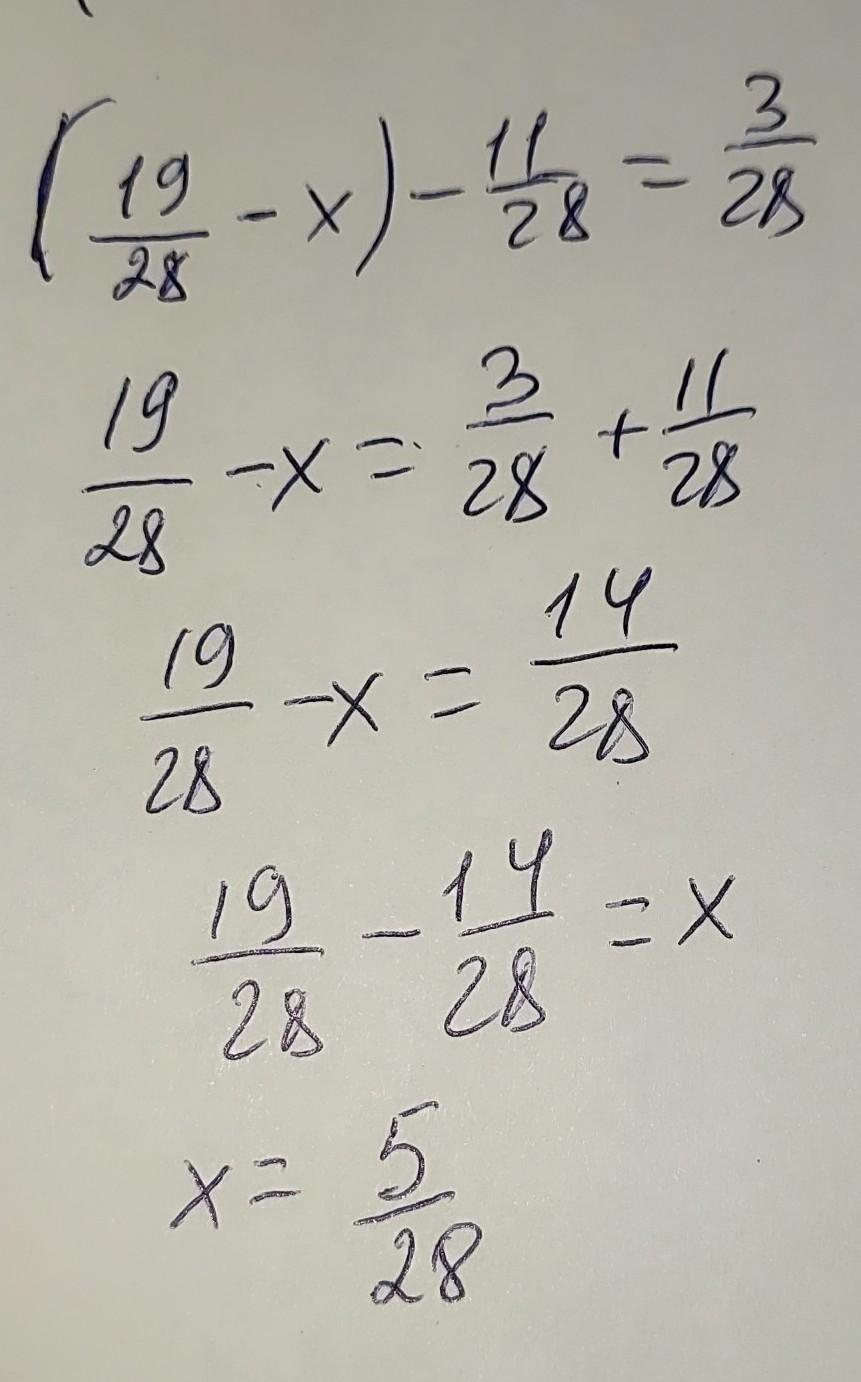 (19/28 - x) - 11/28 = 3/28
19/28 - x = 3/28 + 11/28
19/28 - x = 14/28
19/28 - 14/28 = x
x = 5/28